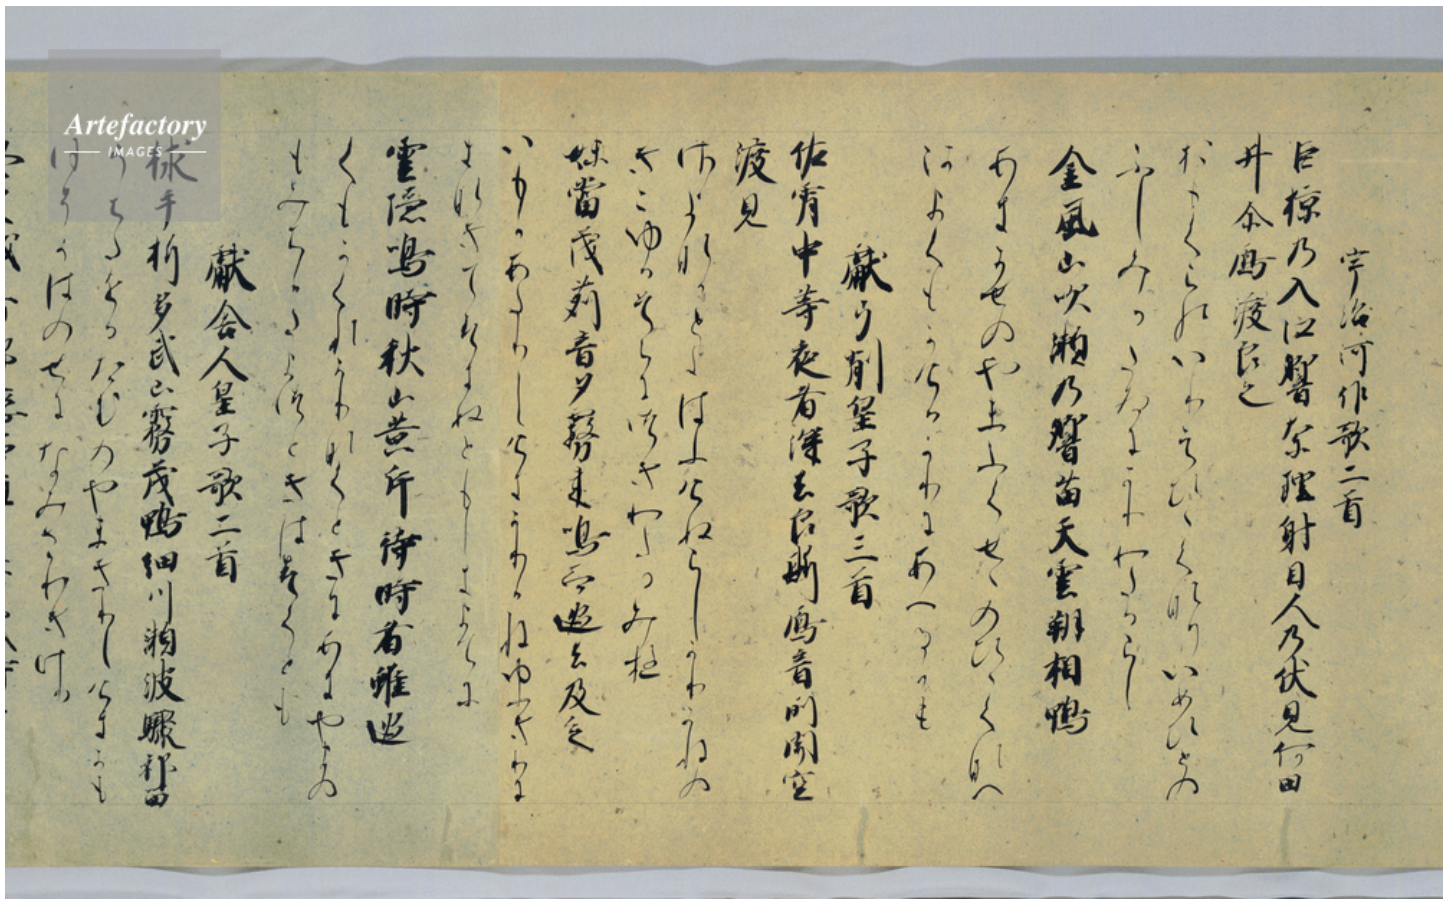 宇治河作歌二首
巨椋乃入江響奈理射目人乃伏見何田
井尓鴈渡良之
おほくらのいりえひゝくなりいめひとの
ふしみかたゐにかりわたるらし
金風山吹瀬乃響苗天雲翔相鴨
あきかせのやまふくせのひゝくなへ
くもかけるかりにあへるかも
獻弓削皇子歌三首
佐宵中等夜者深去良斯鴈音所聞空
渡見
さよなかとよはふけぬらしかりかねの
きこゆるそらにつきわたるみゆ
妹當茂苅音夕霧来鳴而過去及乏
いもかあたりしけきかりかねゆふきりに
きなきてすきぬともし
雲隠鳴時秋山黄片待時者雖過
くもかくれかりなくときにあきやまの
もみちかたまつときはすくとも
獻舎人皇子歌二首
捄手折多武山霧茂鴨細川瀬波驟祁留
たをりたむのやまきりしけきかも
ほそかはのせになみさわきける
Artefactory
IMAGES